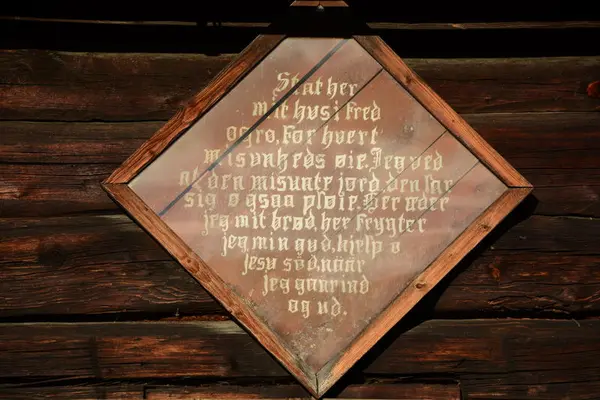 Stat her
mit hus i fred
og ro, For hvert
misunheds øie. Jeg ved
at den misunte jord, den lar
sig også pløie. Her æder
jeg mit brød, her frygter
jeg min gud, hjelp o
Jesu sød, naar
jeg gaar ind
og ud.